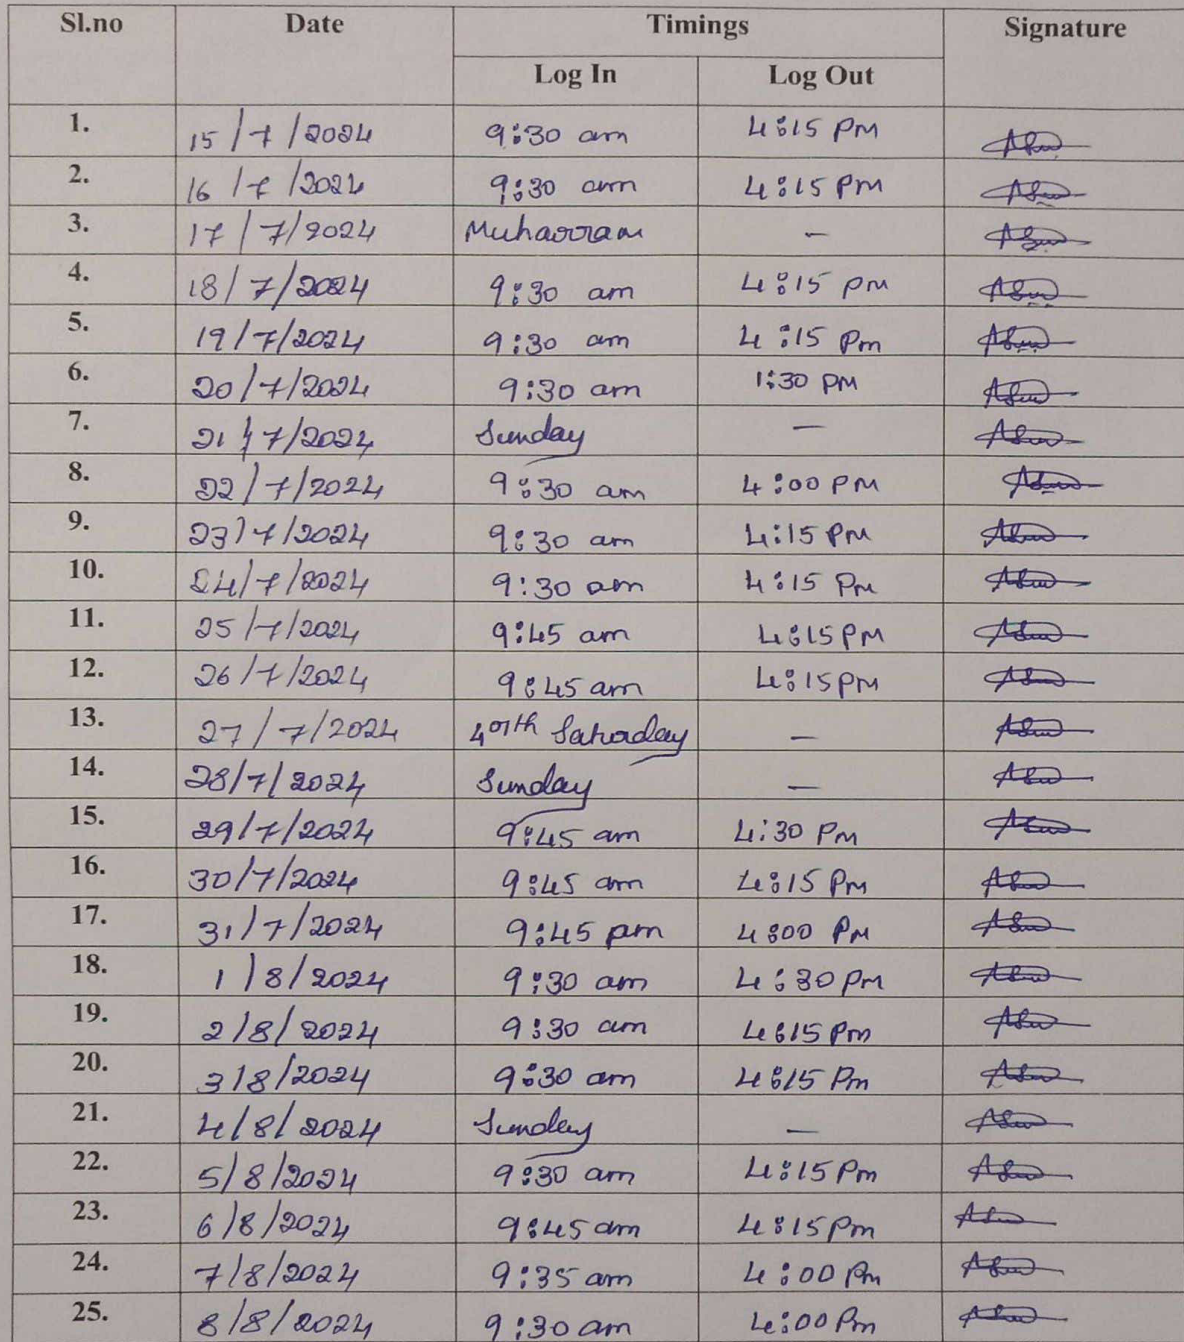 Sl.no Date Timings Signature
Log In Log Out
1. 15/7/2024 9:30 am 4:15 PM
2. 16/7/2024 9:30 am 4:15 PM
3. 17/7/2024 Muharram —
4. 18/7/2024 9:30 am 4:15 PM
5. 19/7/2024 9:30 am 4:15 Pm
6. 20/7/2024 9:30 am 1:30 PM
7. 21/7/2024 Sunday —
8. 22/7/2024 9:30 am 4:00 PM
9. 23/7/2024 9:30 am 4:15 PM
10. 24/7/2024 9:30 am 4:15 Pm
11. 25/7/2024 9:45 am 4:15 PM
12. 26/7/2024 9:45 am 4:15 PM
13. 27/7/2024 4orth Saturday —
14. 28/7/2024 Sunday —
15. 29/7/2024 9:45 am 4:30 Pm
16. 30/7/2024 9:45 am 4:15 Pm
17. 31/7/2024 9:45 pm 4:00 PM
18. 1/8/2024 9:30 am 4:30 PM
19. 2/8/2024 9:30 am 4:15 Pm
20. 3/8/2024 9:30 am 4:15 Pm
21. 4/8/2024 Sunday —
22. 5/8/2024 9:30 am 4:15 Pm
23. 6/8/2024 9:45 am 4:15 Pm
24. 7/8/2024 9:35 am 4:00 Pm
25. 8/8/2024 9:30 am 4:00 Pm